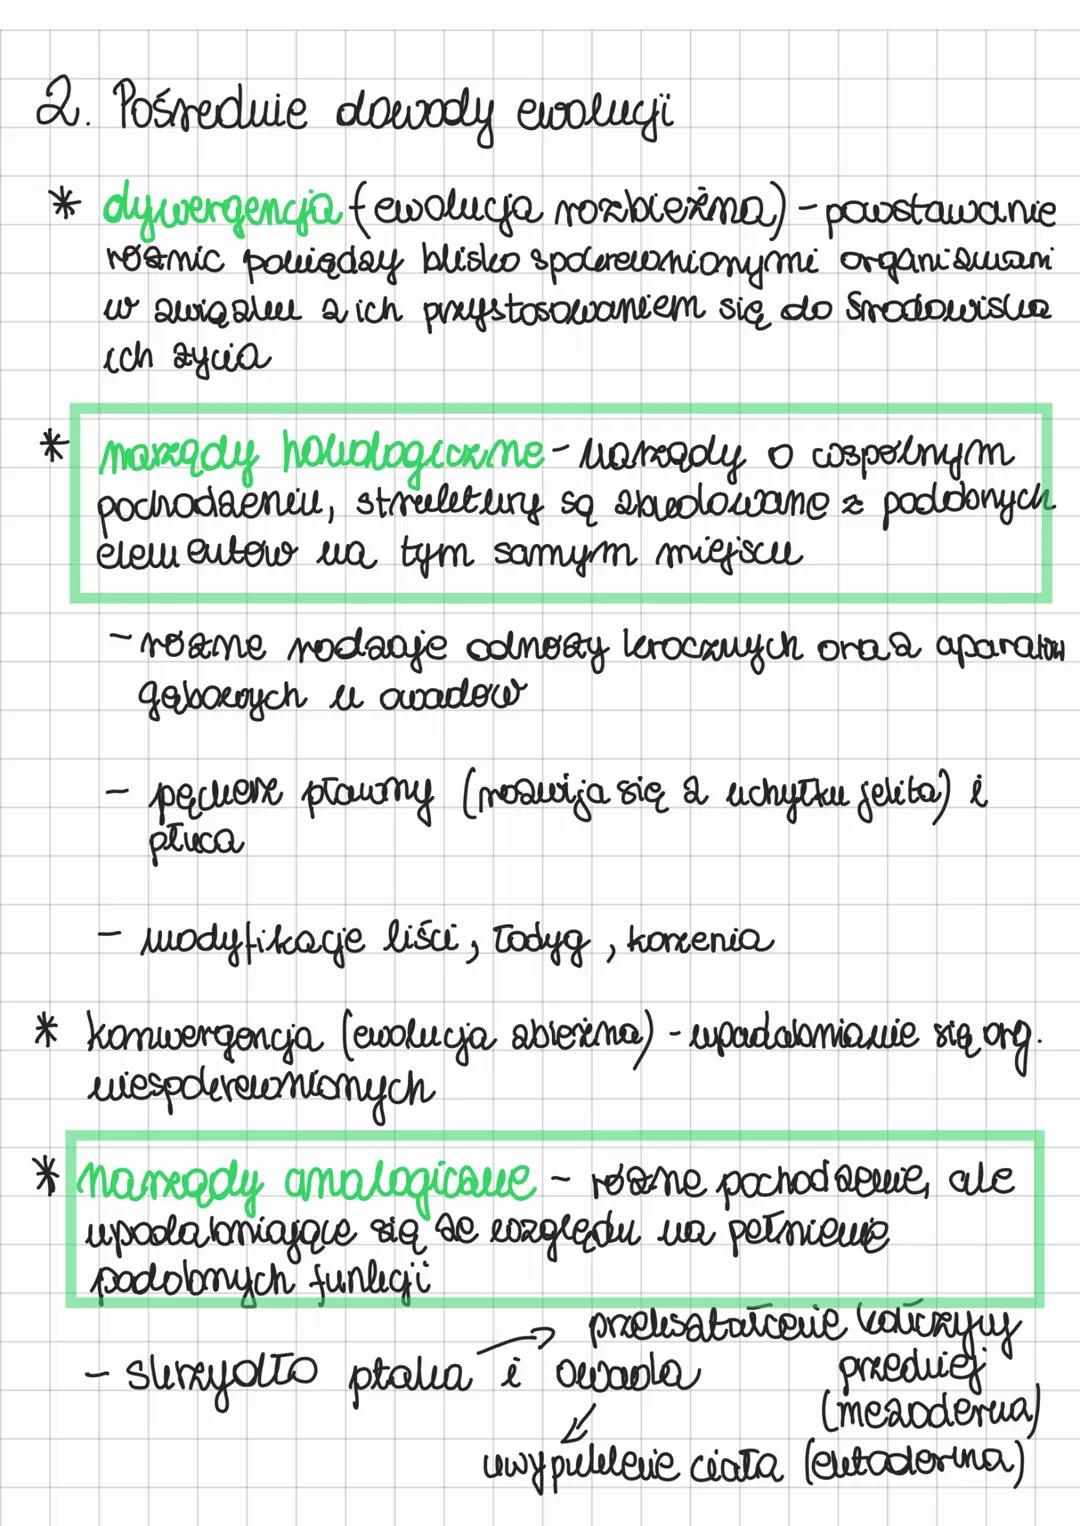 2. Pośrednie dowody ewolucji
* dywergencja (ewolucja rozbieżna) - powstawanie
różnic pomiędzy blisko spokrewnionymi organizmami
w związku z ich przystosowaniem się do środowiska
ich życia
* narządy homologiczne - narządy o wspólnym
pochodzeniu, struktury są zbudowane z podobnych
elementów na tym samym miejscu
- różne rodzaje odnóży krocznych oraz aparatów
gębowych u owadów
- pęcherz pławny (rozwija się z uchyłku jelita) i
płuca
- modyfikacje liści, łodyg, korzenia
* konwergencja (ewolucja zbieżna) - upadabnianie się org.
niespokrewnionych
* narządy analogiczne - różne pochodzenie, ale
upodabniające się ze względu na pełnienie
podobnych funkcji
przekształcenie kończyny
- skrzydło ptaka i owada przedniej
(mezoderma)
uwypuklenie ciała (entoderma)